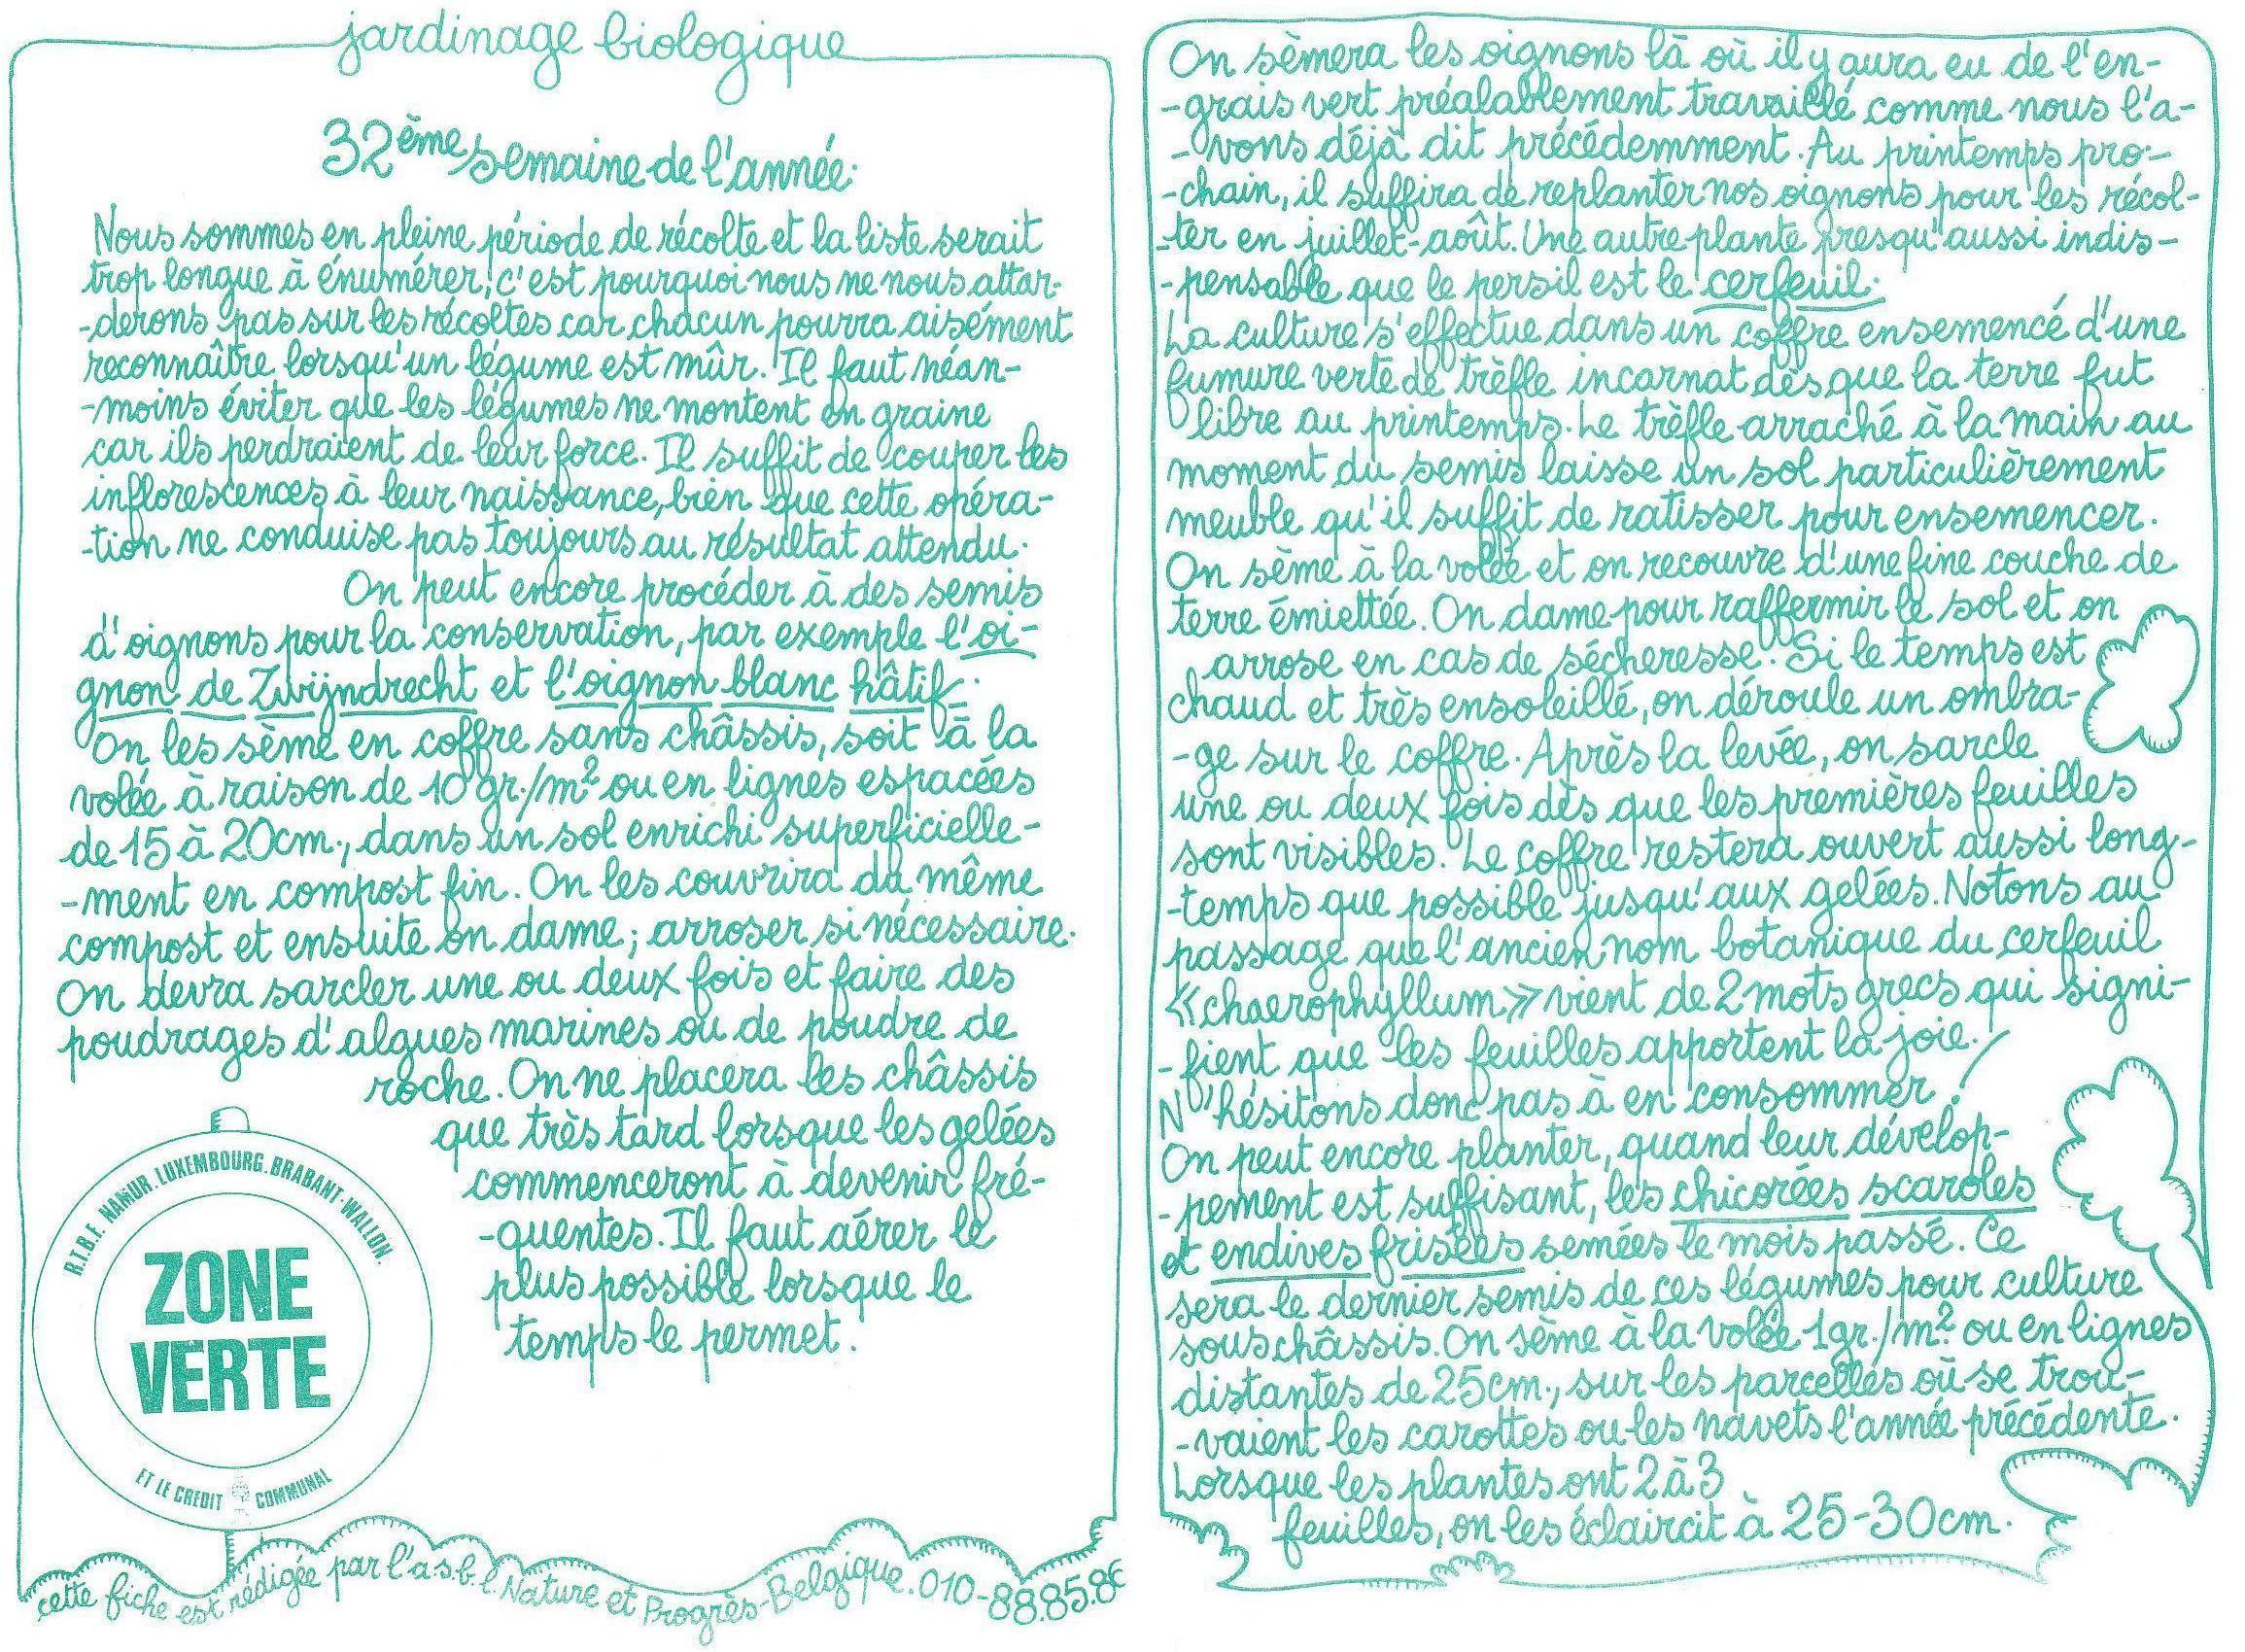 jardinage biologique
32ème semaine de l'année.
Nous sommes en pleine période de récolte et la liste serait
trop longue à énumérer, c'est pourquoi nous ne nous attar-
-derons pas sur les récoltes car chacun pourra aisément
reconnaître lorsqu'un légume est mûr. Il faut néan-
-moins éviter que les légumes ne montent en graine
car ils perdraient de leur force. Il suffit de couper les
inflorescences à leur naissance, bien que cette opéra-
-tion ne conduise pas toujours au résultat attendu.
On peut encore procéder à des semis
d'oignons pour la conservation, par exemple l'oi-
gnon de Zwijndrecht et l'oignon blanc hâtif.
On les sème en coffre sans châssis, soit à la
volée à raison de 10 gr./m² ou en lignes espacées
de 15 à 20cm., dans un sol enrichi superficielle-
-ment en compost fin. On les couvrira du même
compost et ensuite on dame; arroser si nécessaire.
On devra sarcler une ou deux fois et faire des
poudrages d'algues marines ou de poudre de
roche. On ne placera les châssis
que très tard lorsque les gelées
commenceront à devenir fré-
-quentes. Il faut aérer le
plus possible lorsque le
temps le permet.
R.T.B.F. NAMUR. LUXEMBOURG. BRABANT-WALLON.
ZONE
VERTE
ET LE CREDIT COMMUNAL
cette fiche est rédigée par l'a.s.b.l. Nature et Progrès-Belgique. 010-88.85.86
On sèmera les oignons là où il y aura eu de l'en-
-grais vert préalablement travaillé comme nous l'a-
-vons déjà dit précédemment. Au printemps pro-
-chain, il suffira de replanter nos oignons pour les récol-
-ter en juillet-août. Une autre plante presqu'aussi indis-
-pensable que le persil est le cerfeuil.
La culture s'effectue dans un coffre ensemencé d'une
fumure verte de trèfle incarnat dès que la terre fut
libre au printemps. Le trèfle arraché à la main au
moment du semis laisse un sol particulièrement
meuble qu'il suffit de ratisser pour ensemencer.
On sème à la volée et on recouvre d'une fine couche de
terre émiettée. On dame pour raffermir le sol et on
arrose en cas de sécheresse. Si le temps est
chaud et très ensoleillé, on déroule un ombra-
-ge sur le coffre. Après la levée, on sarcle
une ou deux fois dès que les premières feuilles
sont visibles. Le coffre restera ouvert aussi long-
-temps que possible jusqu'aux gelées. Notons au
passage que l'ancien nom botanique du cerfeuil
«chaerophyllum» vient de 2 mots grecs qui signi-
-fient que les feuilles apportent la joie.
N'hésitons donc pas à en consommer!
On peut encore planter, quand leur dévelop-
-pement est suffisant, les chicorées scaroles
et endives frisées semées le mois passé. Ce
sera le dernier semis de ces légumes pour culture
sous châssis. On sème à la volée 1gr./m² ou en lignes
distantes de 25cm., sur les parcelles où se trou-
-vaient les carottes ou les navets l'année précédente.
Lorsque les plantes ont 2 à 3
feuilles, on les éclaircit à 25-30cm.